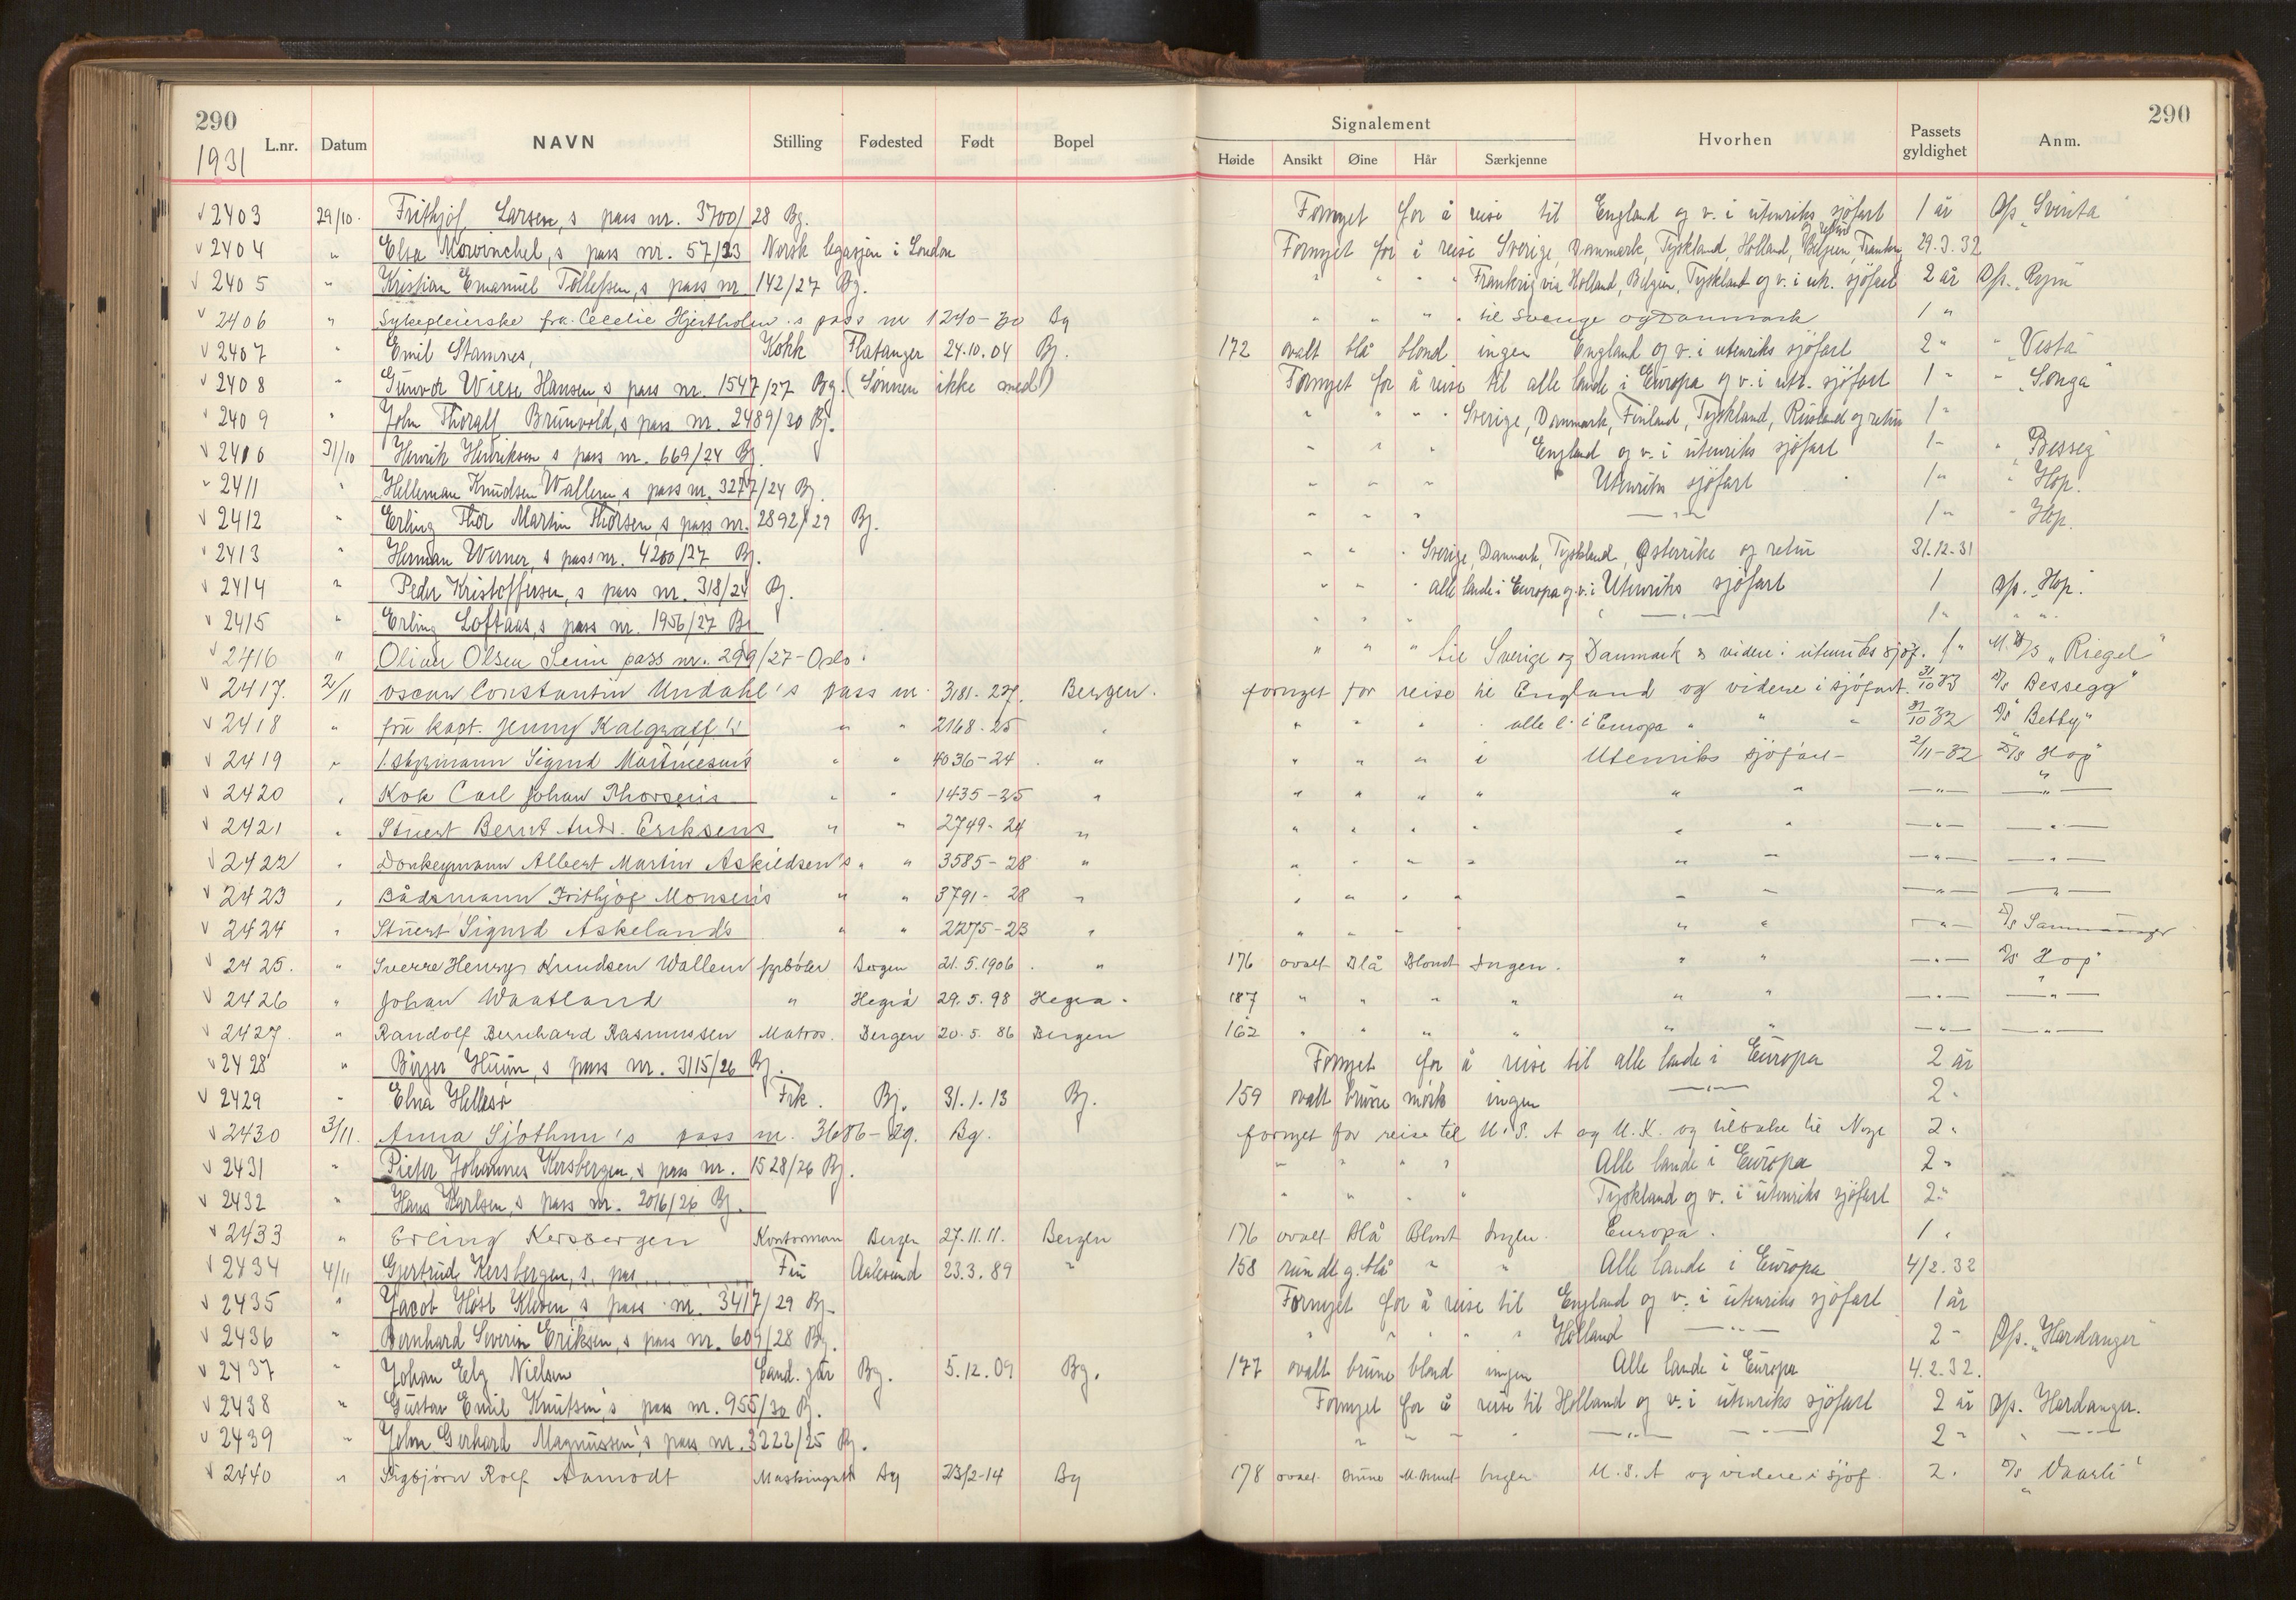 290
290
1931
L.nr. Datum NAVN Stilling Fødested Født Bopel
Signalement
Høide Ansikt Øine Hår Særkjenne Hvorhen Passets gyldighet Anm.
√ 2403 29/10. Frithjof Larsen,s pass nr. 3700/28 Bg. Fornyet for å reise til England og v. i utenriks sjøfart 1 år D/s. „Svinta"
√ 2404 " Elsa Mowinckel,s pass nr. 57/23 Norsk legasjon i London Fornyet for å reise Sverige, Danmark, Tyskland, Holland, Belgien, Frankr. og retur 29.3.32
√ 2405 " Kristian Emanuel Tollefsen,s pass nr 142/27 Bg. " " " Frankrig via Holland, Belgien, Tyskland og v. i utr. sjøfart 2 år D/s.
√ 2406 " Sykepleierske frk. Cecelie Hjertholm s pass nr 1240-30 Bg " " " " til Sverige og Danmark 1 "
√ 2407 " Emil Stamnes, Kokk Flatanger 24.10.04 Bg. 172 ovalt blå blond ingen England og v. i utenriks sjøfart 2 " " „Vesta"
√ 2408 " Gunvor Wiese Hansen,s pass nr. 1547/27 Bg. (Sønnen ikke med) Fornyet for å reise til alle lande i Europa og v. i utr. sjøfart 1 " " „Songa"
√ 2409 " John Thoralf Brunvold,s pass nr. 2489/30 Bg. " " " " Sverige, Danmark, Finland, Tyskland, Rusland og retur 1 "
√ 2410 31/10 Henrik Henriksen,s pass nr. 669/24 Bg. " " " England og v. i utenriks sjøfart 1 " " Besseg
√ 2411 " Helleman Knudsen Wallem,s pass nr. 3277/24 Bg. " " " Utenriks sjøfart 1 " " Hop.
√ 2412 " Erling Thor Martin Thorsen,s pass nr. 2892/29 Bg. " " " —"— 1 " " Hop.
√ 2413 " Herman Werner,s pass nr. 4200/27 Bg. " " " Sverige, Danmark, Tyskland, Østerrike og retur 31.12.31
√ 2414 " Peder Kristoffersen,s pass nr. 318/24 Bg. " " " alle lande i Europa og v. i Utenriks sjøfart 1 D/s. Hop.
√ 2415 " Erling Loftaas,s pass nr. 1956/27 Bg " " " —"— 1 " " "
√ 2416 " Olivar Olsen pass nr. 299/27 - Oslo. " " " til Sverige og Danmark & videre i utenriks sjøf. 1 " „Riegel"
√ 2417. 2/11 Oscar Constantin Undahl's pass nr. 3181-27. Bergen. fornyet for reise til England og videre i sjøfart. 31/10 33 D/s Bessegg"
√ 2418 " fru kapt. Jenny Kalgraff's " " 2168-25 " " " " " alle l. i Europa " " " 31/10 32 D/s Betty"
√ 2419 " 1. styrmann Sigurd Martinesen's " " 4036-24 " " " " i Utenriks sjøfart- 2/11-32 D/s Hop"
√ 2420 " Kok Carl Johan Thorsen's " " 1435-25 " " " " " " " —"— —"—
√ 2421 " Stuert Bernt Andr. Eriksens " " 2749-24 " " " " " " " —"— —"—
√ 2422 " Donkeymann Albert Martin Askildsen's " " 3585-28 " " " " " " " —"— —"—
√ 2423 " Bådsmann Frithjof Monsens " " 3791-28 " " " " " " " —"— —"—
√ 2424 " Stuert Sigurd Askelands " " 2275-23 " " " " " " —"— D/s Samnanger
√ 2425. " Sverre Henry Knudsen Wallem fyrbøter Bergen 21.5.1906. " 176 ovalt Blå Blond Ingen. " " —"— D/s Hop"
√ 2426 " Johan Waatland " Hegra 29.5.98 Hegra. 187 " " " " " " —"— —"—
√ 2427. " Randolf Bernhard Rasmussen Matros. Bergen 20.5.86 Bergen 162 " " " " " " —"— —"—
√ 2428 " Birger Huun,s pass nr. 3115/26 Bg. Fornyet for å reise til alle lande i Europa 2 år
√ 2429 " Elna Hellesø Frk. Bg. 31.1.13 Bg. 159 ovalt brune mørk ingen —"— 2 "
√ 2430 3/11. Anna Sjøthun's pass nr. 3686-29. Bg. fornyet for reise til U.S.A og U.K. og tilbake til Norge 2 "
√ 2431 " Pieter Johannes Kersbergen,s pass nr. 1528/26 Bg. " " " " Alle lande i Europa 2 "
√ 2432 " Hans Karlsen,s pass nr. 2016/26 Bg. " " " " Tyskland og v. i utenriks sjøfart 2 "
√ 2433 " Erling Kersbergen Kontormann Bergen 27.11.11. Bergen 176 ovalt Blå Blont Ingen. Europa. 1 "
√ 2434 4/11 Gjertrud Kersbergen,s pas Fru Aalesund 23.3.89 " 158 rundt g.blå " " Alle lande i Europa 4/2.32
√ 2435 " Jacob Høst Kleven,s pass nr. 3417/29 Bg. Fornyet for å reise til England og v. i utenriks sjøfart 1 år
√ 2436 " Bernhard Severin Eriksen,s pass nr. 609/28 Bg. " " " " " Holland —"— 2 " D/s. „Hardanger"
√ 2437 " Johan Elg Nielsen Cand. jur Bg. 5.12.09 Bg. 177 ovalt brune blond ingen Alle lande i Europa 4.2.32.
√ 2438 " Gustav Emil Knutsen,s pass nr. 955/30 Bg. Fornyet for å reise til Holland og v. i utenriks sjøfart 2 år D/s. Hardanger.
√ 2439 " John Gerhard Magnussen,s pass nr. 3222/25 Bg. " " " " —"— —"— 2 " " —"—
√ 2440 " Sigbjørn Rolf Aamodt Maskingutt Bg 23/2-14 Bg 178 ovalt Brune Ingen U.S.A og videre i sjøf. 2 " D/s „Vaarli"